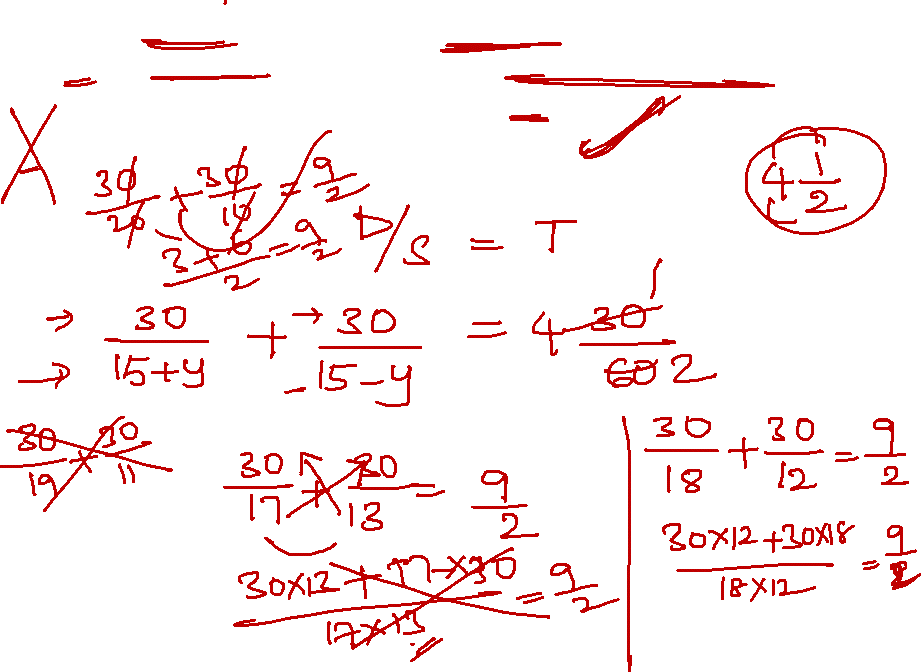 A =
30/20 + 30/10 = 9/2
4 1/2
3+6/2 = 9/2
D/S = T
→ 30/15+y + → 30/15-y = 4 30/60 2
30/19 + 30/11
30/17 + 30/13 = 9/2
30/18 + 30/12 = 9/2
30×12 + 17×30/17×13 = 9/2
30×12+30×18/18×12 = 9/2